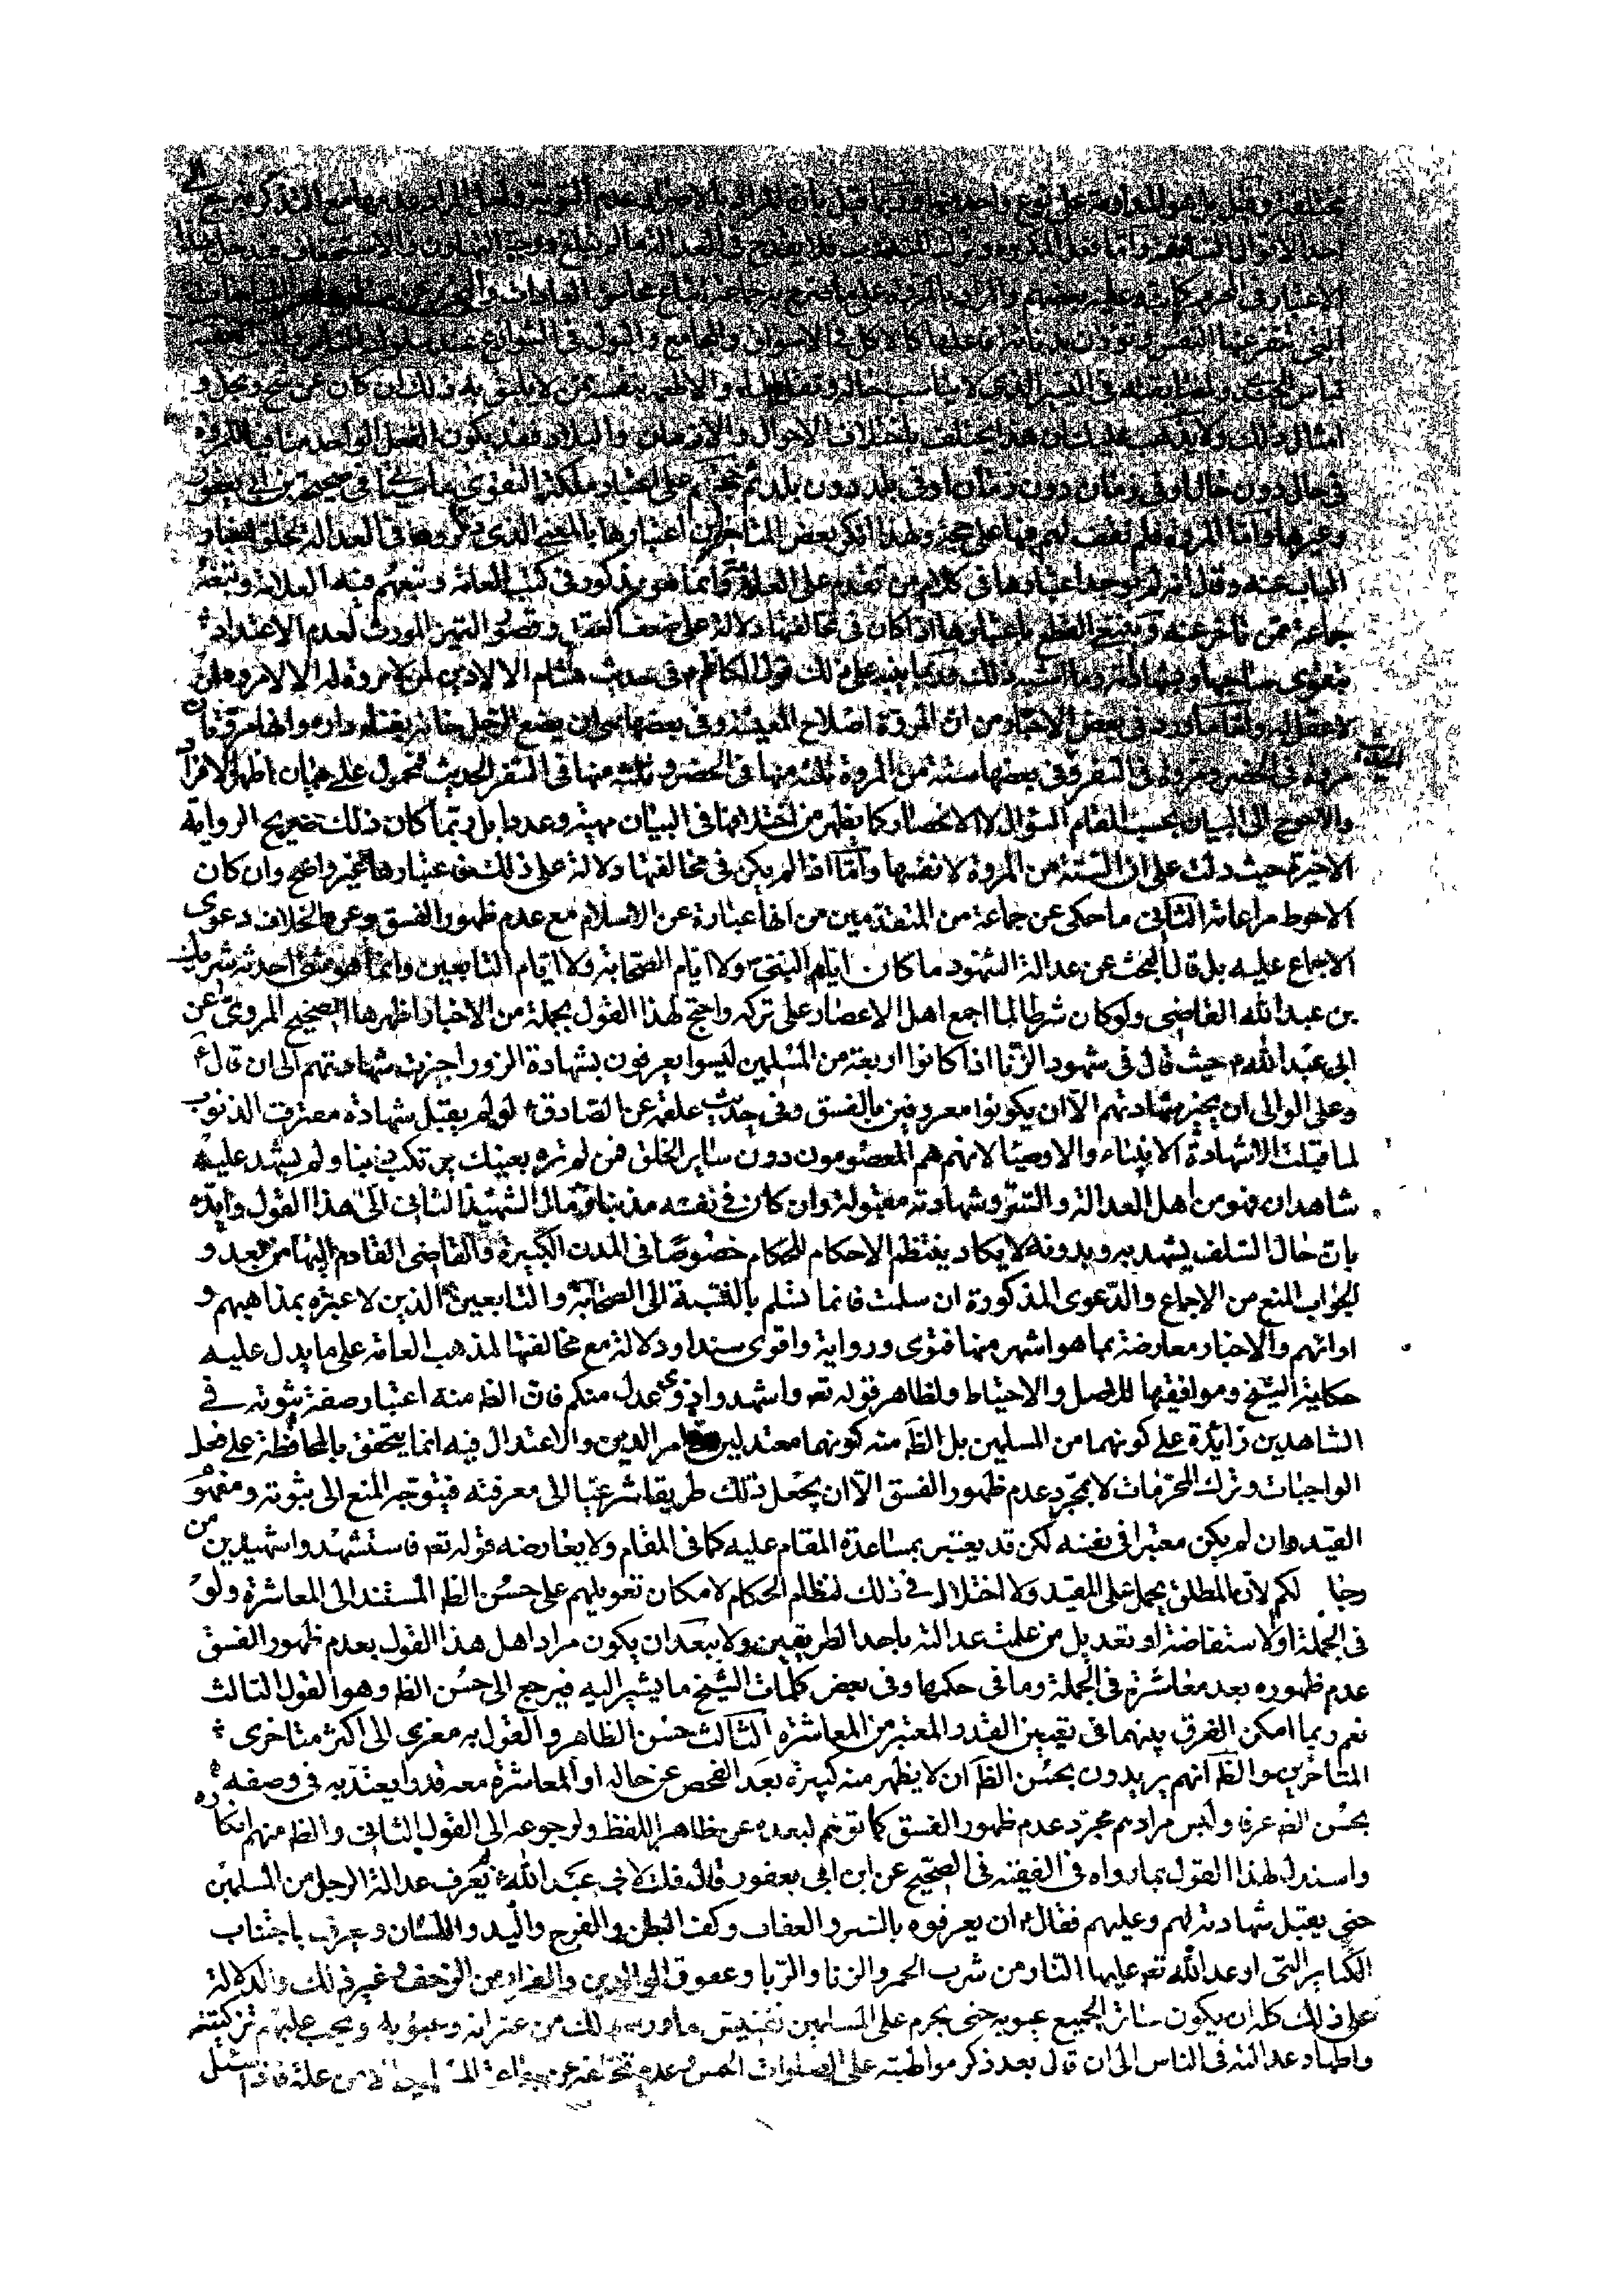 احد الاقوال السابقة واما فعل المكروه وترك المندوب فلا يقدح في العدالة ما لم يبلغ
التي تنفر عنها النفس وتؤذن بدناءة فاعلها كالاكل في الاسواق والمجامع والبول في الشوارع عند سلوك الناس
امثال ذلك ولا يذهب عليك ان هذا يختلف باختلاف الاحوال والازمان والبلاد فقد يكون الفعل الواحد منافيا للمروة
في حال دون حال او في زمان دون زمان او في بلد دون بلد ثم على اعتبار ملكة التقوى ما سيجئ في صحيحة بن ابي يعفور
وغيرها واما المروة فلم نقف لهم فيها على حجة ولهذا انكر بعض المتاخرين اعتبارها بالمعنى الذي ذكروها في العدالة
عنه وقال انه لم يوجد اعتبارها في كلام من تقدم على العلامة وانما هو مذكور في كتب العامة وتبعهم فيه العلامة وتبعه
جماعة ممن تاخر عنه القطع باعتبارها اذا كان في مخالفتها دلالة على ضعف العقل وقصور التميز المورث لعدم الاعتداد
بتقوى صاحبها وما اشبه ذلك وربما ينبه على ذلك قول الكاظم ع في حديث هشام الا لا دين لمن لا مروة له الا لا مروة لمن
لا عقل له واما ما ورد في بعض الاخبار من ان المروة اصلاح المعيشة وفي بعضها هي ان يضع الرجل خوانه بفناء داره وانها مروتان
مروة في الحضر ومروة في السفر وفي بعضها ستة من المروة ثلثة منها في الحضر وثلثة منها في السفر الحديث فمحمول على بيان اظهر الافراد
والاحوج الى البيان بحسب المقام السؤال لا الانحصار كما يظهر من اختلافها في البيان مهية وعددا بل ربما كان ذلك صريح الرواية
الاخيرة حيث دلت على ان الستة من المروة لا نفسها واما اذا لم يكن في مخالفتها دلالة على ذلك فاعتبارها غير واضح وان كان
الاحوط مراعاته الثاني ما حكى عن جماعة من المتقدمين من انها عبارة عن الاسلام مع عدم ظهور الفسق وعن الخلاف دعوى
الاجماع عليه بل قال البحث عن عدالة الشهود ما كان ايام النبي ص ولا ايام الصحابة ولا ايام التابعين وانما هو شئ احدثه شريك
بن عبد الله القاضى ولو كان شرطا لما اجمع اهل الاعصار على تركه واحتج لهذا القول بجملة من الاخبار اظهرها الصحيح المروى عن
ابي عبد الله ع حيث قال في شهود الزنا اذا كانوا اربعة من المسلمين ليسوا يعرفون بشهادة الزور اجيزت شهادتهم الى ان قال ع
وعلى الوالى ان يجيز شهادتهم الا ان يكونوا معروفين بالفسق وفي حديث علقمة عن الصادق ع لو لم يقبل شهادة معترف الذنوب
لما قبلت الا شهادة الانبياء والاوصيا لانهم هم المعصومون دون ساير الخلق فمن لم تره بعينك يرتكب ذنبا ولم يشهد عليه
شاهدان فهو من اهل العدالة والستر وشهادته مقبولة وان كان في نفسه مذنبا ومال الشهيد الثاني الى هذا القول وايده
بان حال السلف يشهد به وبدونه لا يكاد ينتظم الاحكام للحكام خصوصا في المدن الكبيرة والقاضى القادم اليها من بعد و
الجواب المنع من الاجماع والدعوى المذكورة ان سلمت فانما تسلم بالنسبة الى الصحابة والتابعين الذين لا عبرة بمذاهبهم و
ارائهم والاخبار معارضة بما هو اشهر منها فتوى ورواية واقوى سندا ودلالة مع مخالفتها لمذهب العامة على ما يدل عليه
حكاية الشيخ وموافقتها للاصل والاحتياط ولظاهر قوله تعه واشهدوا ذوى عدل منكم فان الظ منه اعتبار صفة ثبوتيه في
الشاهدين زايدة على كونهما من المسلمين بل الظ منه كونهما معتدلين امر الدين والاعتدال فيه انما يتحقق بالمحافظة على فعل
الواجبات وترك المحرمات لا بمجرد عدم ظهور الفسق الا ان يجعل ذلك طريقا شرعيا الى معرفته فيتوجه المنع الى ثبوته ومفهوم
القيد وان لم يكن معتبرا في نفسه لكن قد يعتبر بمساعدة المقام عليه كما في المقام ولا يعارضه قوله تعه فاستشهدوا شهيدين من
رجا لكم لان المطلق يحمل على المقيد ولا اختلال في ذلك لنظام الحكام لامكان تعويلهم على حسن الظ المستند الى المعاشرة ولو
في الجملة او الاستفاضة او تعديل من علمت عدالته باحد الطريقين ولا يبعد ان يكون مراد اهل هذا القول بعدم ظهور الفسق
عدم ظهوره بعد معاشرة في الجملة وما في حكمها وفي بعض كلمات الشيخ ما يشير اليه فيرجع الى حسن الظ وهو القول الثالث
نعم ربما امكن الفرق بينهما في تعيين القدر المعتبر من المعاشرة الثالث حسن الظاهر والقول به معزى الى اكثر متاخرى
المتاخرين والظ انهم يريدون بحسن الظ ان لا يظهر منه كبيرة بعد الفحص عن حاله او المعاشرة معه قدرا يعتد به في وصفه
بحسن الظ عرفا وليس مرادهم مجرد عدم ظهور الفسق كما توهم لبعده عن ظاهر اللفظ ولرجوعه الى القول الثاني والظ منهم انكاره
واستدل لهذا القول بما رواه في الفقيه في الصحيح عن ابن ابي يعفور قال قلت لابي عبد الله ع بم يعرف عدالة الرجل من المسلمين
حتى يقبل شهادته لهم وعليهم فقال ع ان يعرفوه بالستر والعفاف وكف البطن والفرج واليد واللسان ويعرف باجتناب
الكباير التي اوعد الله تعه عليها النار من شرب الخمر والزنا والربا وعقوق الوالدين والفرار من الزحف وغير ذلك والدلالة
على ذلك كله ان يكون ساتر الجميع عيوبه حتى يحرم على المسلمين تفتيش ما وراء ذلك من عثراته وعيوبه ويجب عليهم تزكيته
واظهار عدالته في الناس الى ان قال بعد ذكر مواظبته على الصلوات الخمس وعدم تخلفه عن جماعة المسلمين الا من علة فاذا سئل